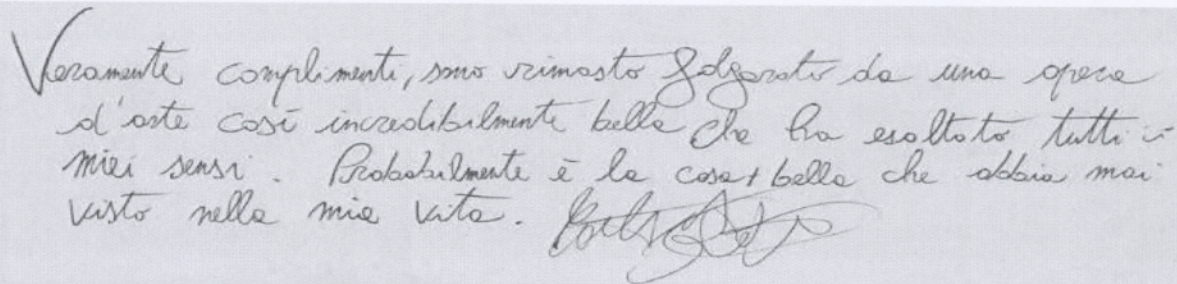 Veramente complimenti, sono rimasto folgorato da una opera
d'arte così incredibilmente bella che ha esaltato tutti i
miei sensi. Probabilmente è la cosa + bella che abbia mai
visto nella mia vita.